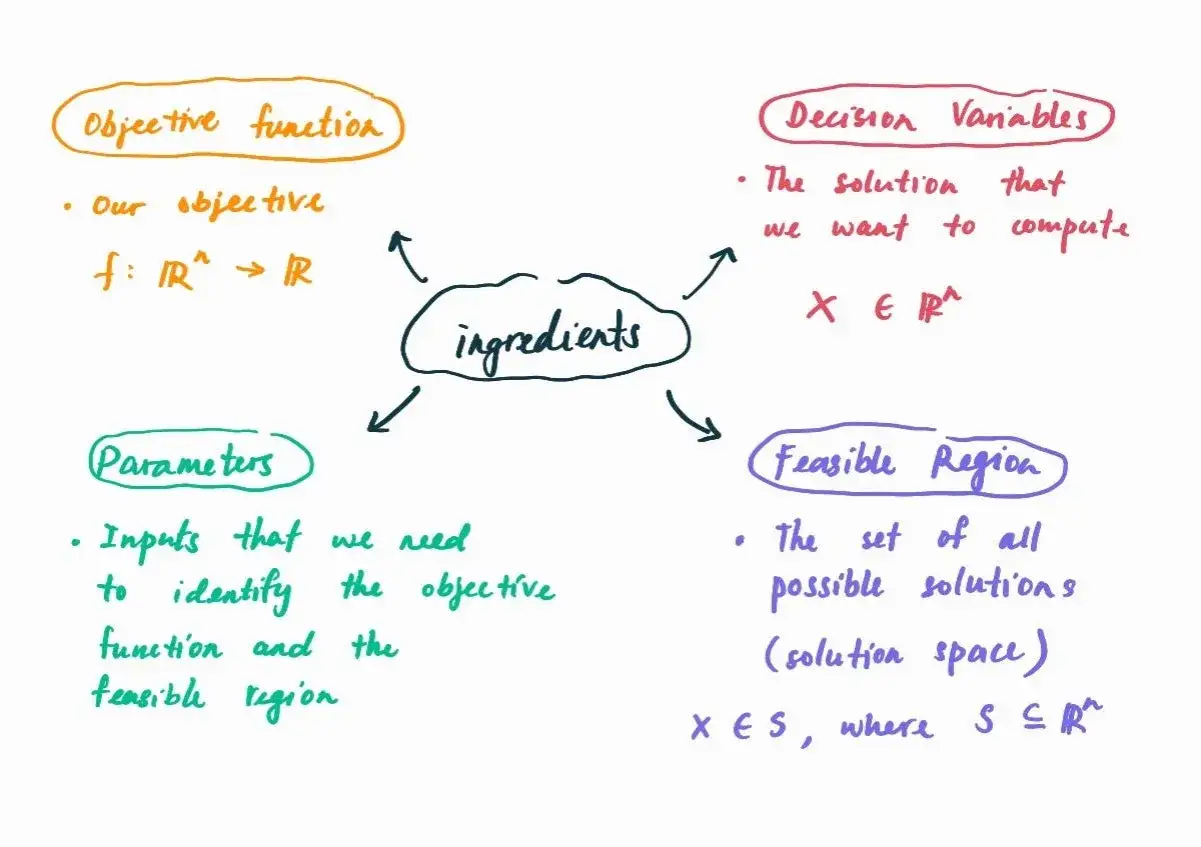 Objective function
• Our objective
f: ℝⁿ → ℝ
Decision Variables
• The solution that
we want to compute
X ∈ ℝⁿ
ingredients
Parameters
• Inputs that we need
to identify the objective
function and the
feasible region
Feasible Region
• The set of all
possible solutions
(solution space)
X ∈ S, where S ⊆ ℝⁿ